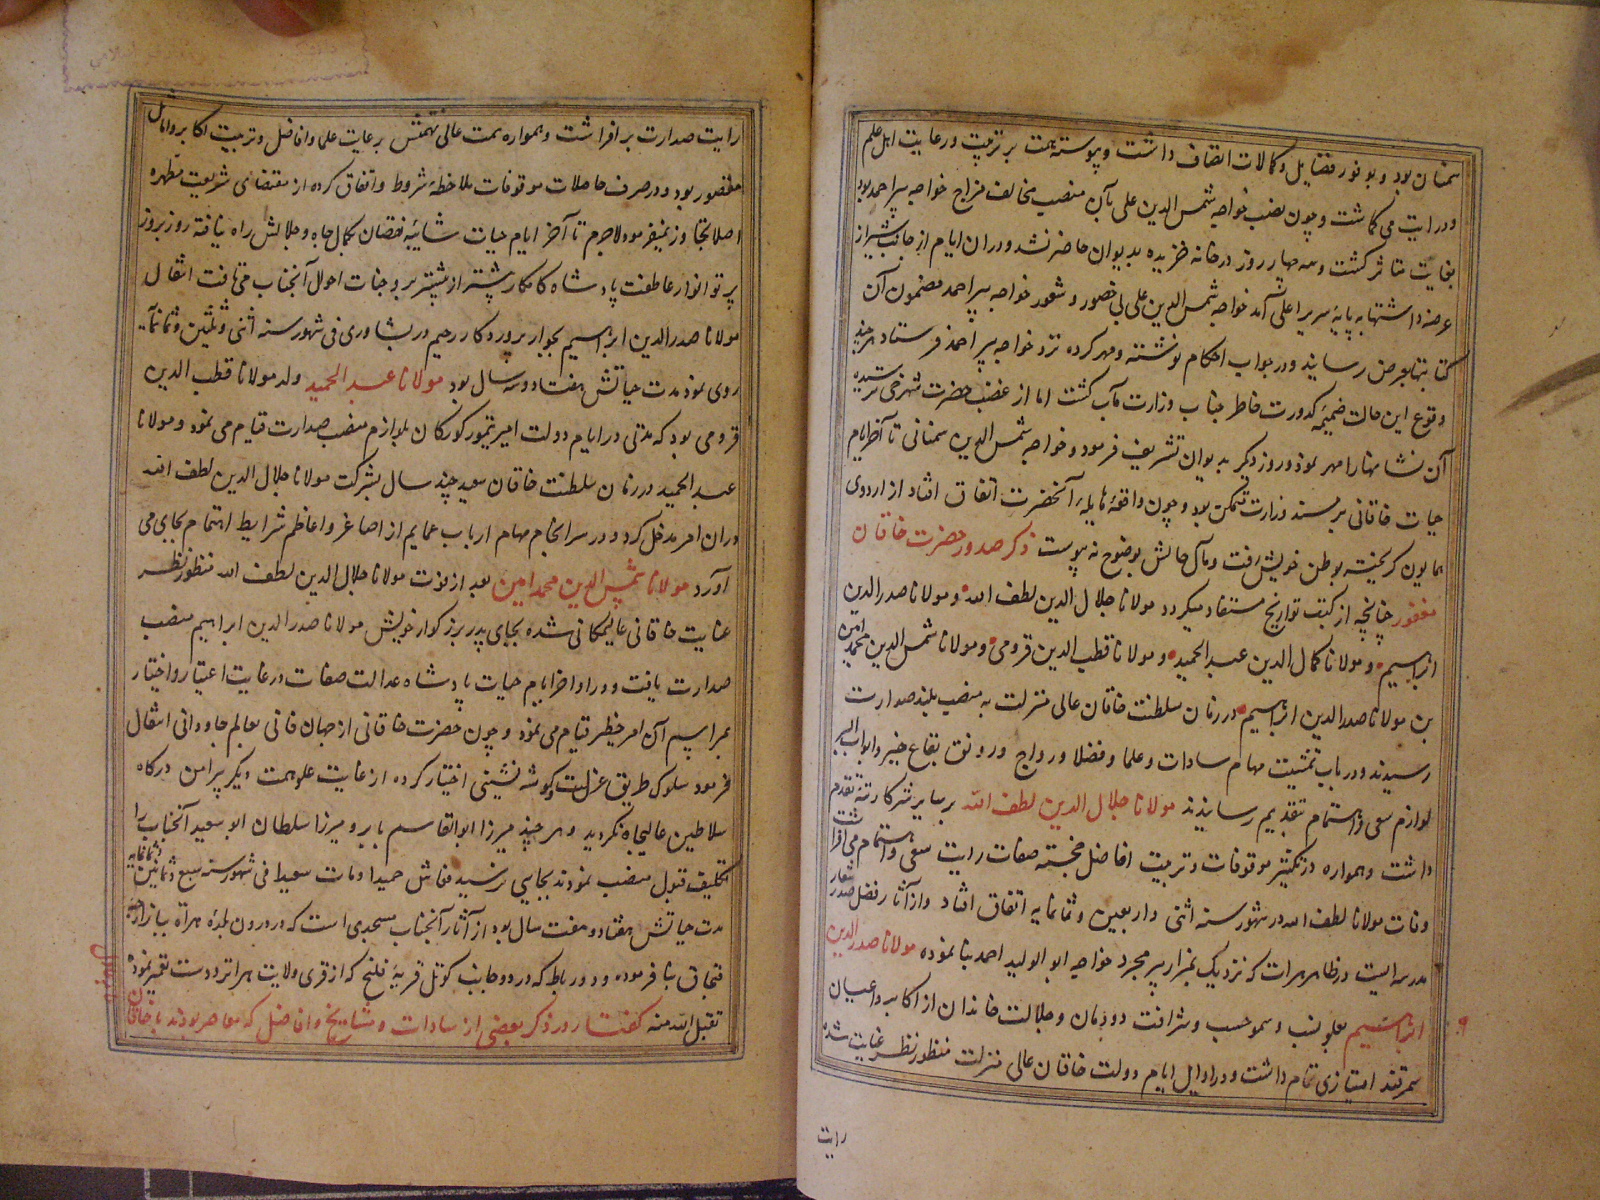 سمنان بود و بوفور فضایل و کمالات اتصاف داشت و پیوسته همت بر تربیت و رعایت اهل علم
و درایت می گماشت و چون نصب خواجه شمس الدین علی بآن منصب مخالف مزاج خواجه پیر احمد بود
بغایت متاثر گشت و سه چهار روز در خانه خزیده بدیوان حاضر نشد و در آن ایام از جانب شیراز
عرضه داشتها بپایه سریر اعلی آمد خواجه شمس الدین علی بی حضور و شعور خواجه پیر احمد مضمون آن
کتابتها بعرض رسانید و در جواب احکام نوشته و مهر کرده نزد خواجه پیر احمد فرستاد هرچند
وقوع این حالت ضمیمه کدورت خاطر جناب وزارت مآب گشت اما از غضب حضرت شهرخی ترسیده
آن نشانها را مهر نمود و روز دیگر بدیوان تشریف فرمود و خواجه شمس الدین سمنانی تا آخر ایام
حیات خاقانی بر مسند وزارت متمکن بود و چون واقعه هایله آنحضرت اتفاق افتاد از اردوی
همایون گریخته بوطن خویش رفت و مآل حالش بوضوح نه پیوست ذکر صدور حضرت خاقان
مغفور چنانچه از کتب تواریخ مستفاد میگردد مولانا جلال الدین لطف الله و مولانا صدر الدین
ابراهیم و مولانا کمال الدین عبد الحمید و مولانا قطب الدین قرومی و مولانا شمس الدین محمد امین
بن مولانا صدر الدین ابراهیم در زمان سلطنت خاقان عالی منزلت به منصب بلند صدارت
رسیدند و در باب تمشیت مهام سادات و علما و فضلا و رواج و رونق بقاع خیر و ابواب البر
لوازم سعی و اهتمام بتقدیم رسانیدند مولانا جلال الدین لطف الله بر سایر شرکا رتبه تقدم
داشت و همواره در تکثیر موقوفات و تربیت افاضل خجسته صفات رایت سعی و اهتمام می افراشت
وفات مولانا لطف الله در شهور سنه اثنی و اربعین و ثمانمایه اتفاق افتاد و از آثار فضل شعار صدر
مدرسه ایست در ظاهر هرات که نزدیک بمزار پیر مجرد خواجه ابو الولید احمد بنا نموده مولانا صدر الدین
ابراهیم بعلو نسب و سمو حسب و شرافت دودمان و جلالت خاندان از اکابر و اعیان
سمرقند امتیازی تمام داشت و در اوایل ایام دولت خاقان عالی منزلت منظور نظر عنایت شده
رایت
رایت صدارت بر افراشت و همواره همت عالی نهمتش بر رعایت علما و افاضل و تربیت اکابر و اماثل
مقصور بود و در صرف حاصلات موقوفات ملاحظه شروط واقفان کرده از مقتضای شریعت مطهره
اصلا تجاوز نمیفرمود لاجرم تا آخر ایام حیات شائبه نقصان بکمال جاه و جلالش راه نیافته روز بروز
پرتو انوار عاطفت پادشاه کامکار پیشتر از پیشتر بر وجنات احوال آنجناب می تافت انتقال
مولانا صدر الدین ابراهیم بجوار پروردگار رحیم در نشاوری فی شهور سنه اثنی و ثلثین و ثمانمایه
روی نمود مدت حیاتش هفتاد و سه سال بود مولانا عبد الحمید ولد مولانا قطب الدین
قرومی بود که مدتی در ایام دولت امیر تیمور کورکان بلوازم منصب صدارت قیام می نمود و مولانا
عبد الحمید در زمان سلطنت خاقان سعید چند سال بشرکت مولانا جلال الدین لطف الله
در آن امر مدخل کرد و در سرانجام مهام ارباب عمایم از اصاغر و اعاظم شرایط اهتمام بجای می
آورد مولانا شمس الدین محمد امین بعد از فوت مولانا جلال الدین لطف الله منظور نظر
عنایت خاقانی عالیمکانی شده بجای پدر بزرگوار خویش مولانا صدر الدین ابراهیم منصب
صدارت یافت و در اواخر ایام حیات پادشاه عدالت صفات در غایت اعتبار و اختیار
بمراسم آن امر خطیر قیام می نمود و چون حضرت خاقانی از جهان فانی بعالم جاودانی انتقال
فرمود سلوک طریق عزلت و گوشه نشینی اختیار کرده از غایت علو همت دیگر پیرامن درگاه
سلاطین عالیجاه نگردید و هر چند میرزا ابو القاسم بابر و میرزا سلطان ابو سعید آنجناب را
تکلیف قبول منصب نمودند بجایی نرسید فعاش حمیدا و مات سعیدا فی شهور سنه سبع و ثمانین و ثمانمایه
مدت حیاتش هفتاد و هفت سال بود از آثار آنجناب مسجدی است که در درون بلده هراة ببازار
قبچاق بنا فرموده و دو رباط که در دو جانب کوتل قریه فلنج که از قری ولایت هراتروددست تعمیر نموده
تقبل الله منه گفتار در ذکر بعضی از سادات و مشایخ و افاضل که معاصر بودند با خاقان